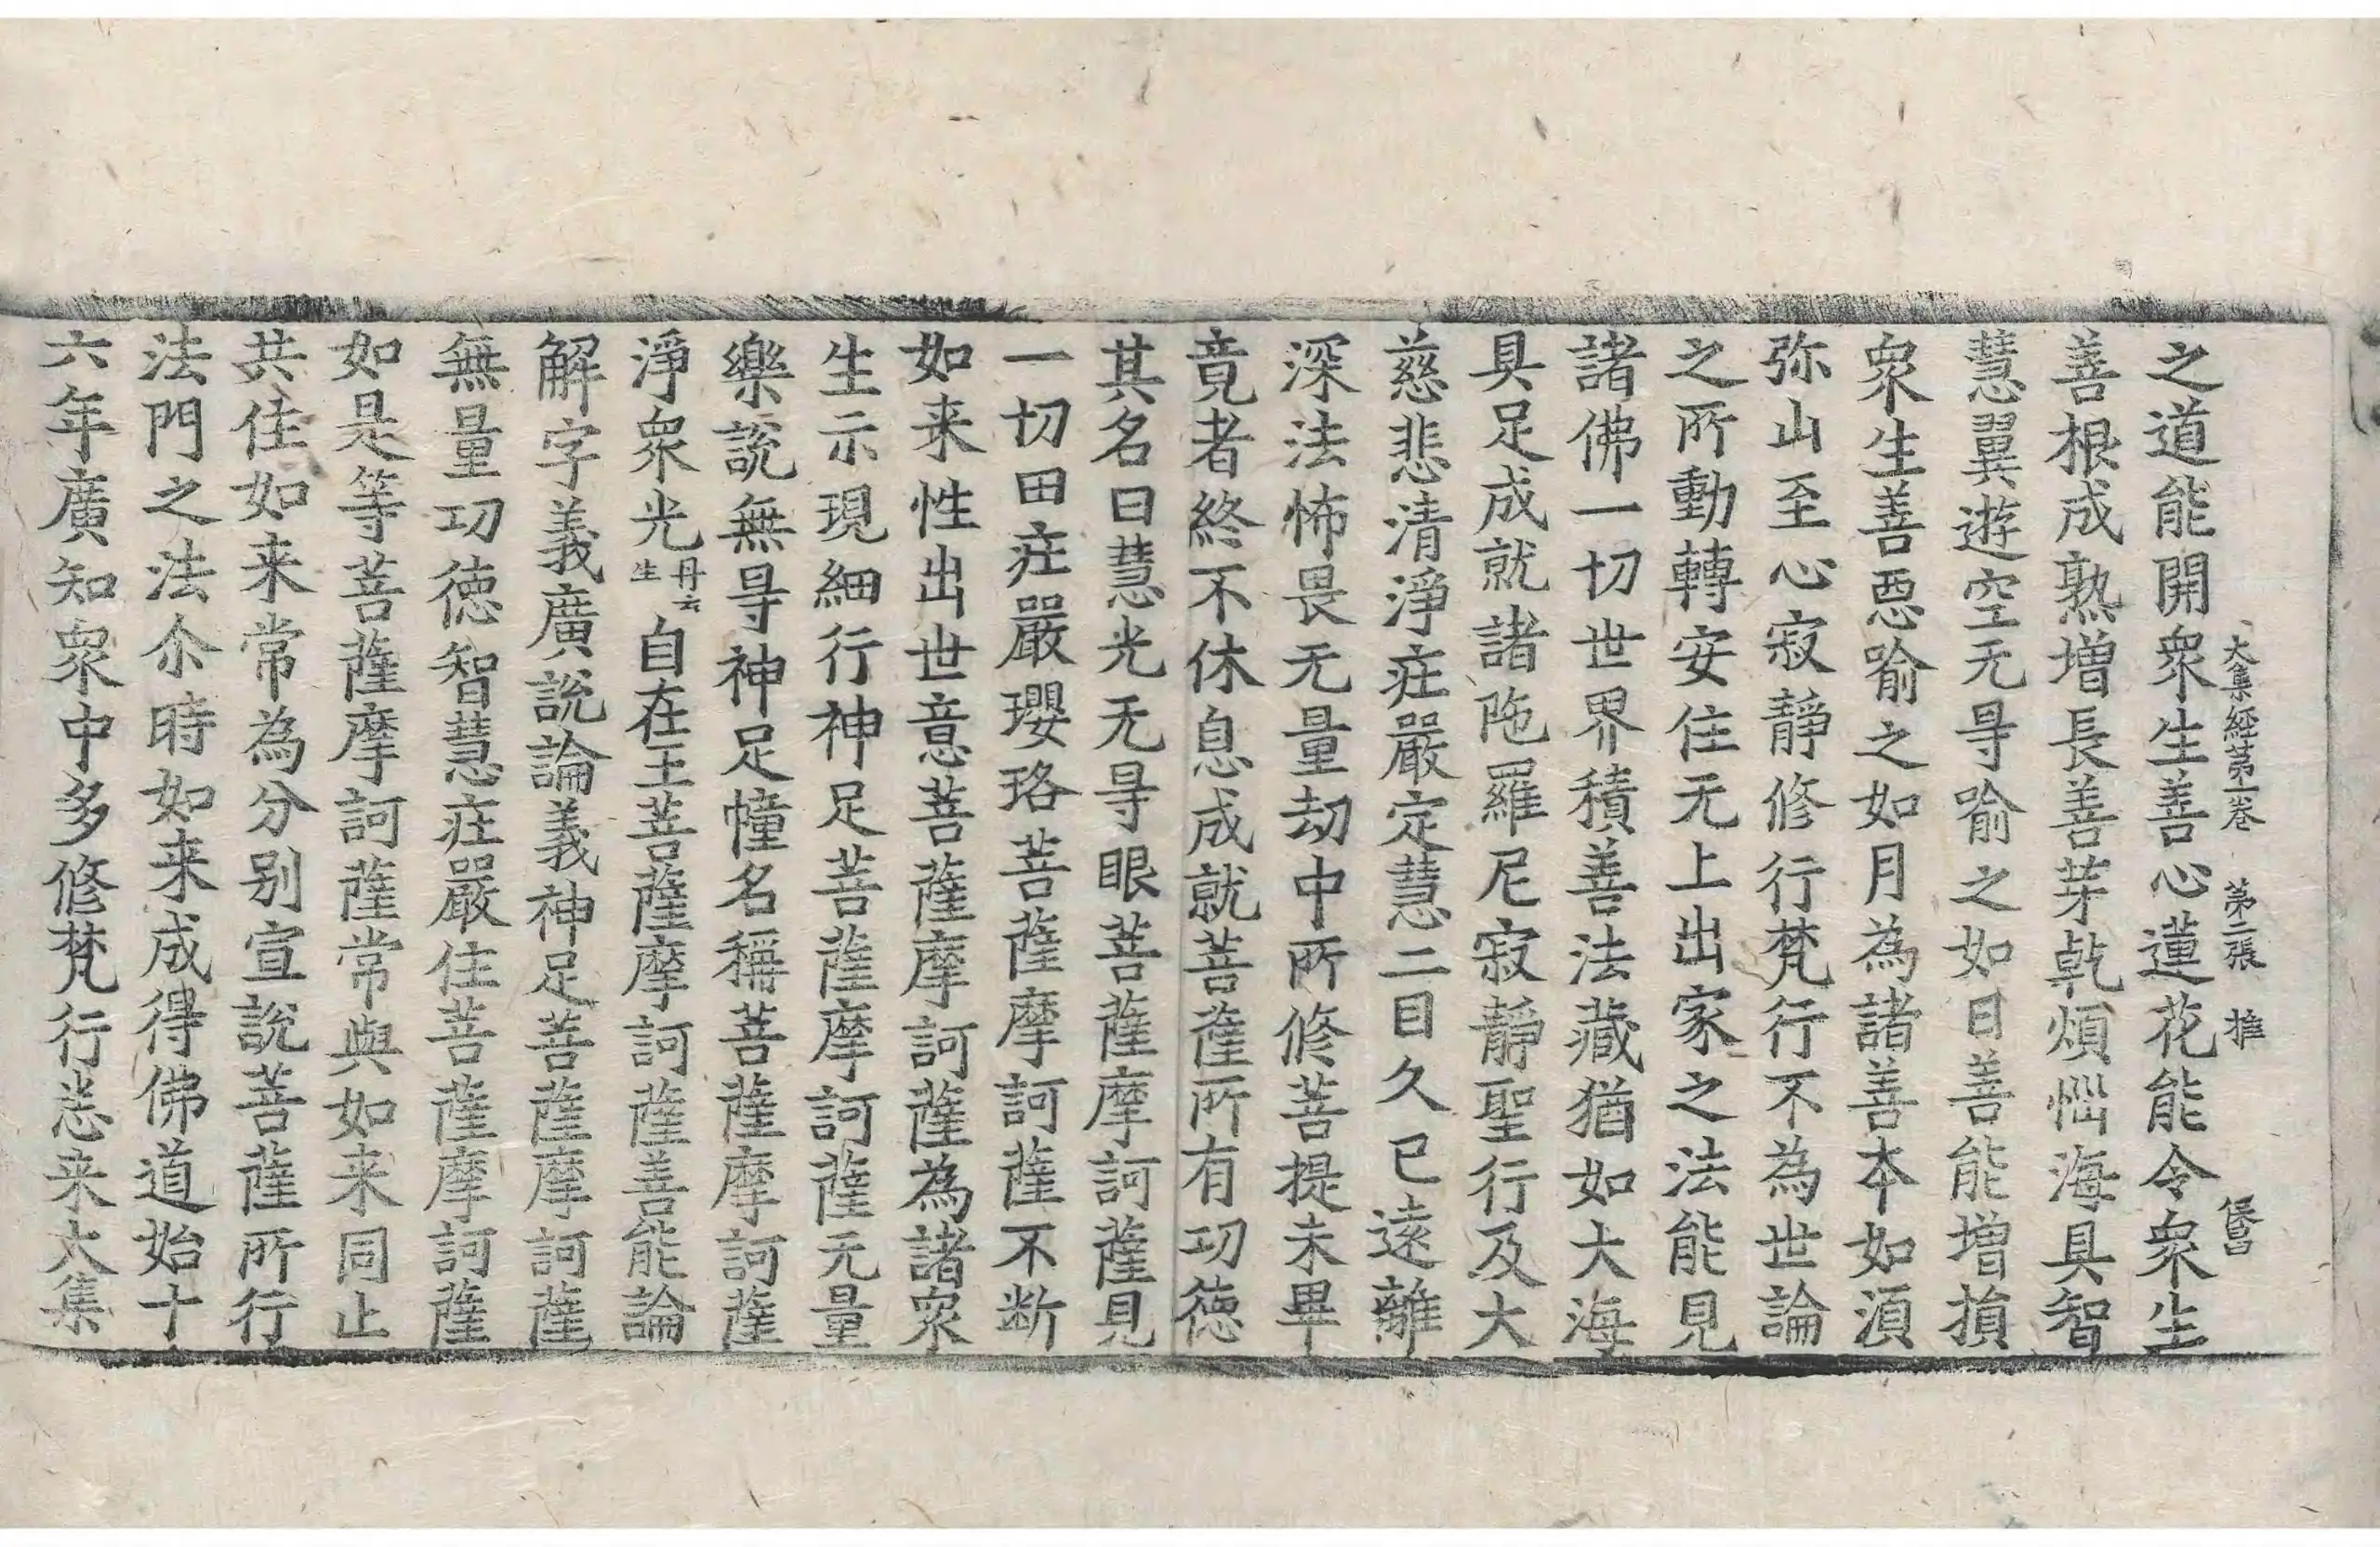 大集經第一卷 第二張 推
之道能開衆生善心蓮花能令衆生
善根成熟增長善芽乹煩惱海具智
慧翼遊空无㝵喻之如日善能增損
衆生善惡喻之如月為諸善本如湏
弥山至心寂靜修行梵行不為世論
之所動轉安住无上出家之法能見
諸佛一切世界積善法藏猶如大海
具足成就諸陁羅尼寂靜聖行及大
慈悲清淨庄嚴定慧二目久已遠離
深法怖畏无量劫中所修菩提未畢
竟者終不休息成就菩薩所有功德
其名曰慧光无㝵眼菩薩摩訶薩見
一切田庄嚴瓔珞菩薩摩訶薩不断
如来性出世意菩薩摩訶薩為諸衆
生示現細行神足菩薩摩訶薩无量
樂說無㝵神足幢名稱菩薩摩訶薩
淨衆光丹云生自在王菩薩摩訶薩善能論
解字義廣說論義神足菩薩摩訶薩
無量功德智慧庄嚴住菩薩摩訶薩
如是等菩薩摩訶薩常與如来同止
共住如来常為分别宣說菩薩所行
法門之法尒時如来成得佛道始十
六年廣知衆中多修梵行悉来大集